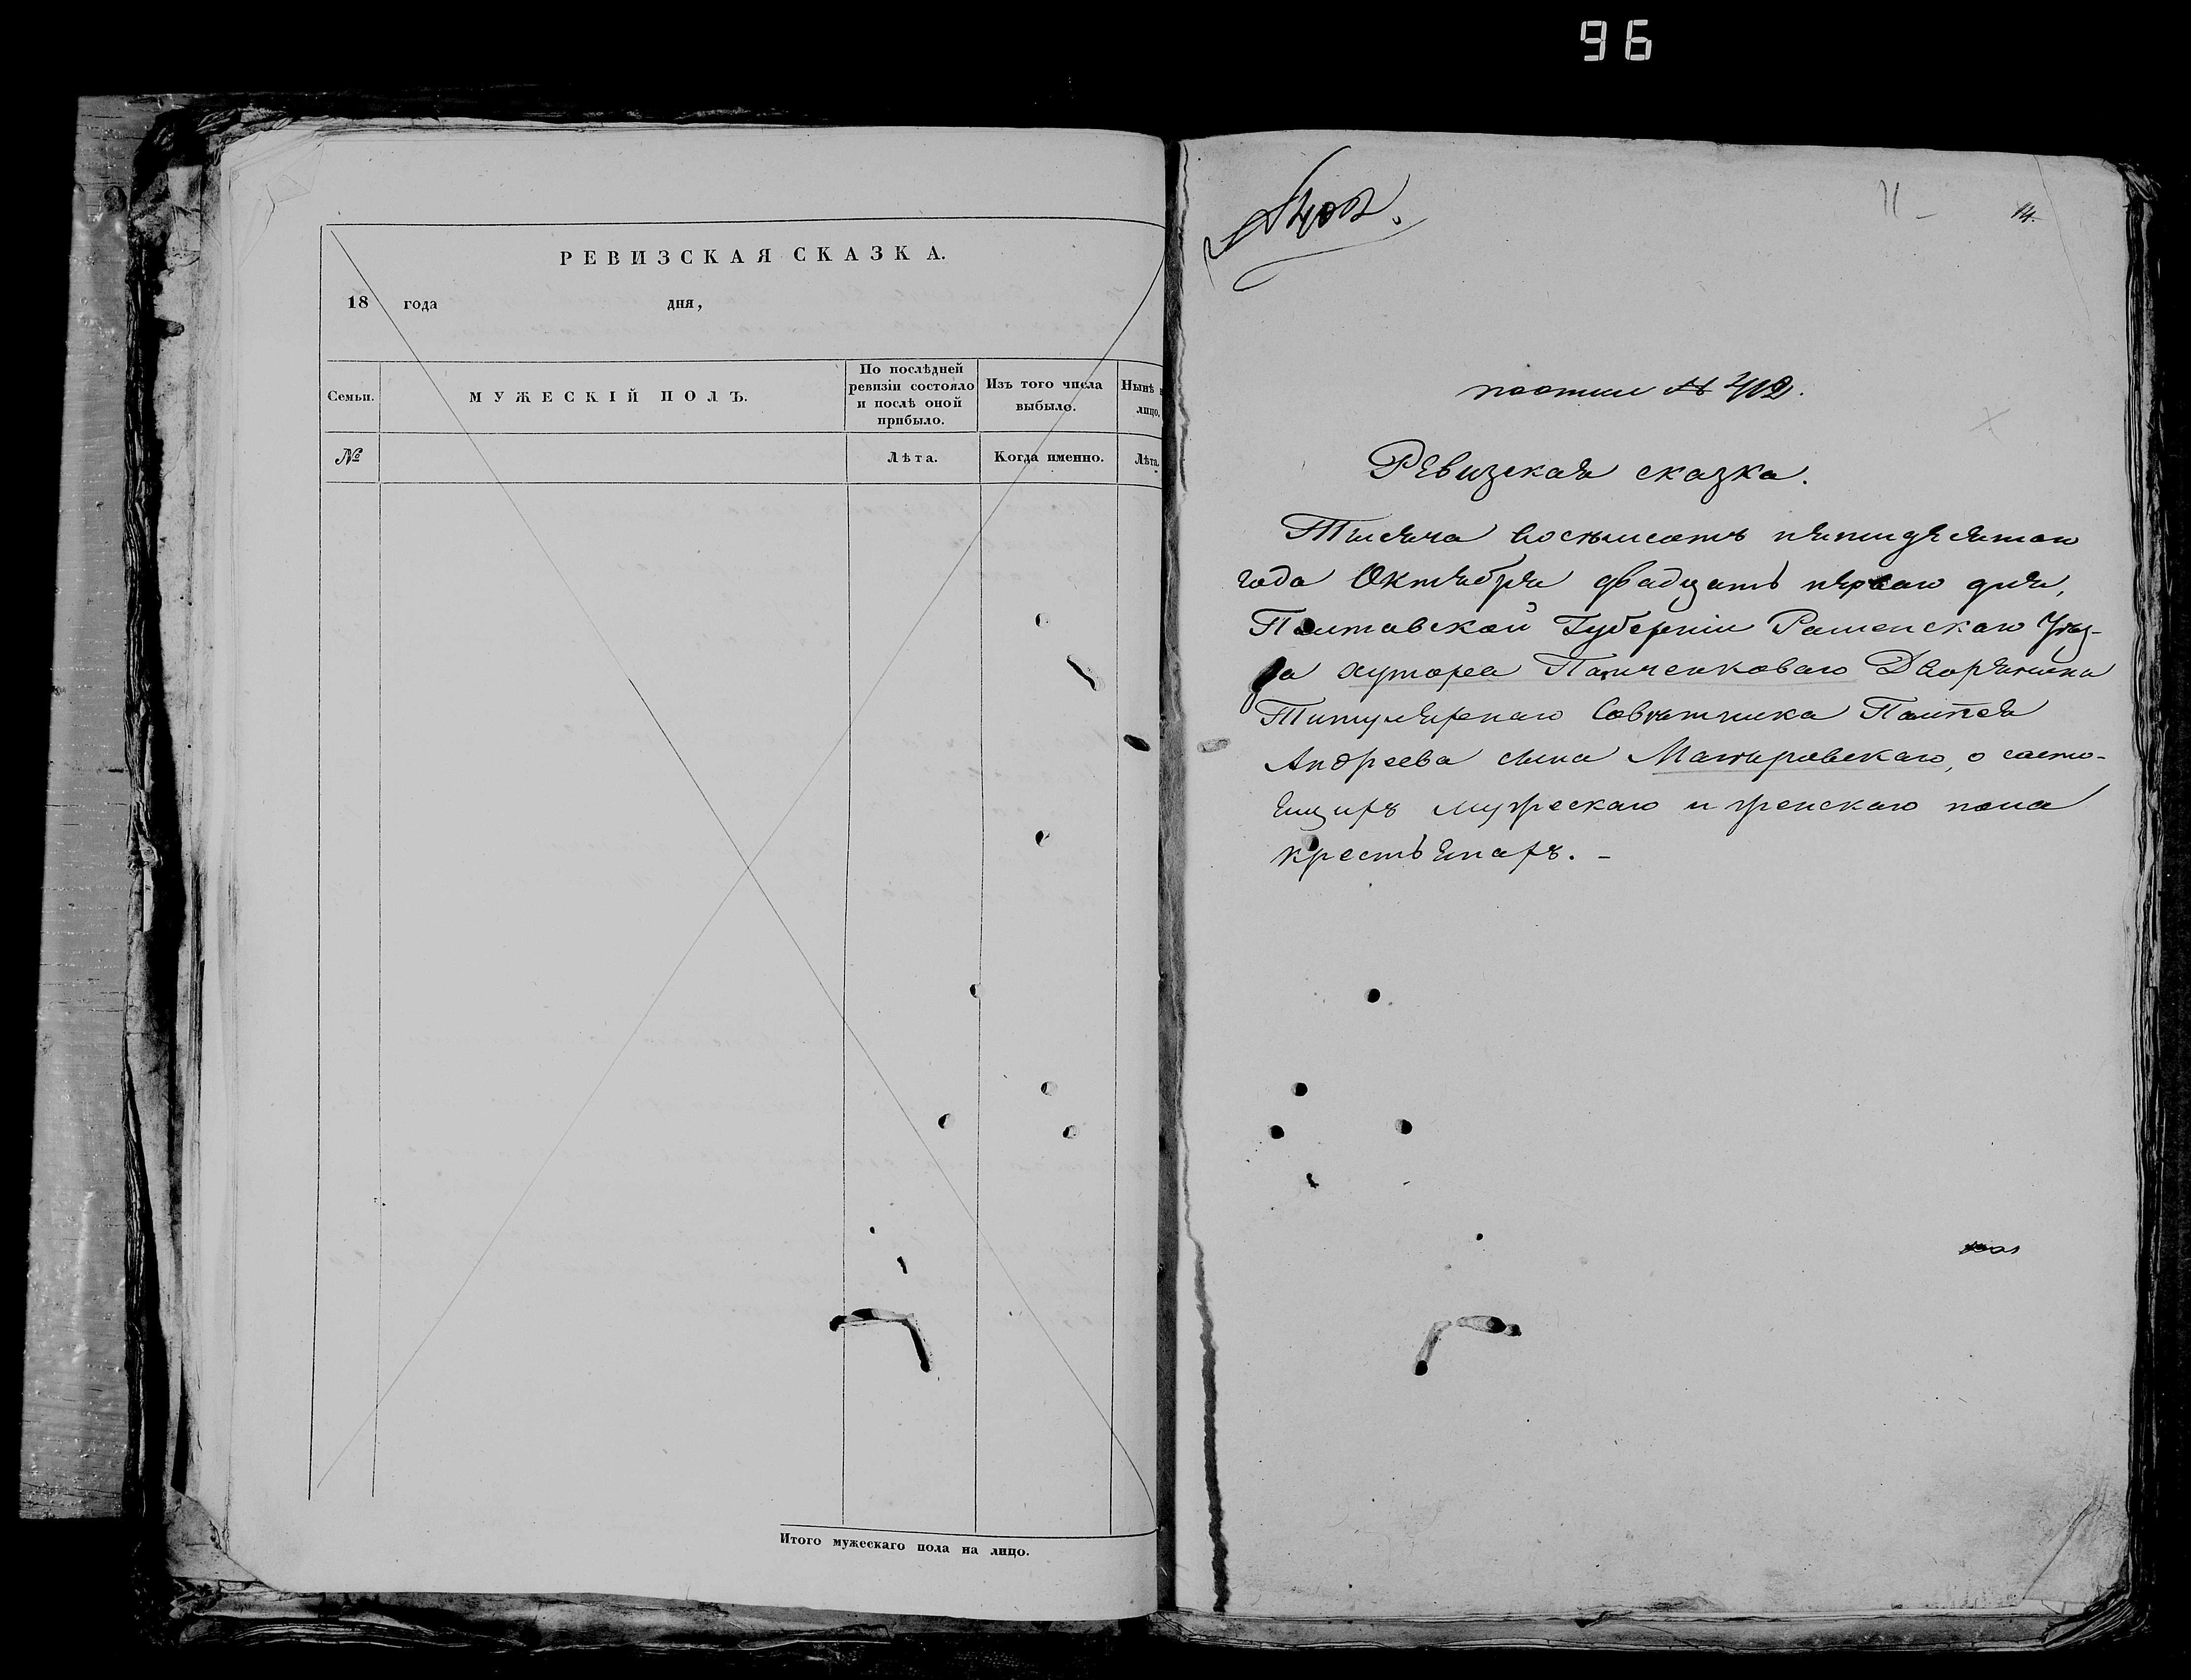 96
РЕВИЗСКАЯ СКАЗКА.
18 года дня,
Семьи.
МУЖЕСКІЙ ПОЛЪ.
По послѣдней ревизіи состояло и послѣ оной прибыло.
Изъ того числа выбыло.
Нынѣ
лицо.
№
Лѣта.
Когда именно.
Лѣта.
Итого мужескаго пола на лицо.
11
14.
№
Ревизская сказка.
Тысяча восемьсотъ пятидесятаго
года Октября двадцать перваго дня,
Полтавской Губерніи Роменскаго Уѣз-
да хутора Панченковаго Дворянина
Титулярнаго Совѣтника
Андреева сына о состо-
ящихъ мужескаго и женскаго пола
крестьянахъ. -